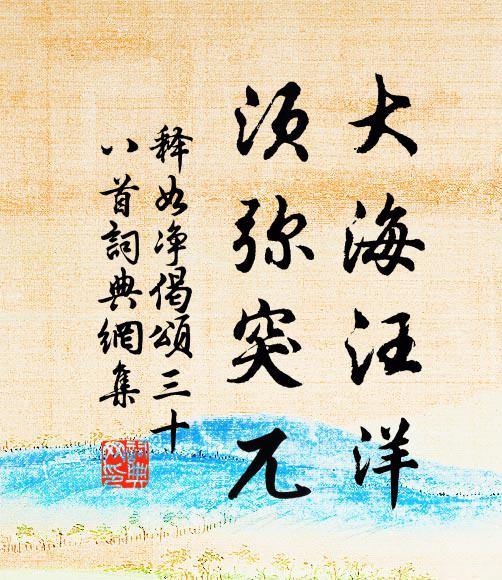 大海汪洋
须弥突兀
释如净偈颂三十
八首詞典網集